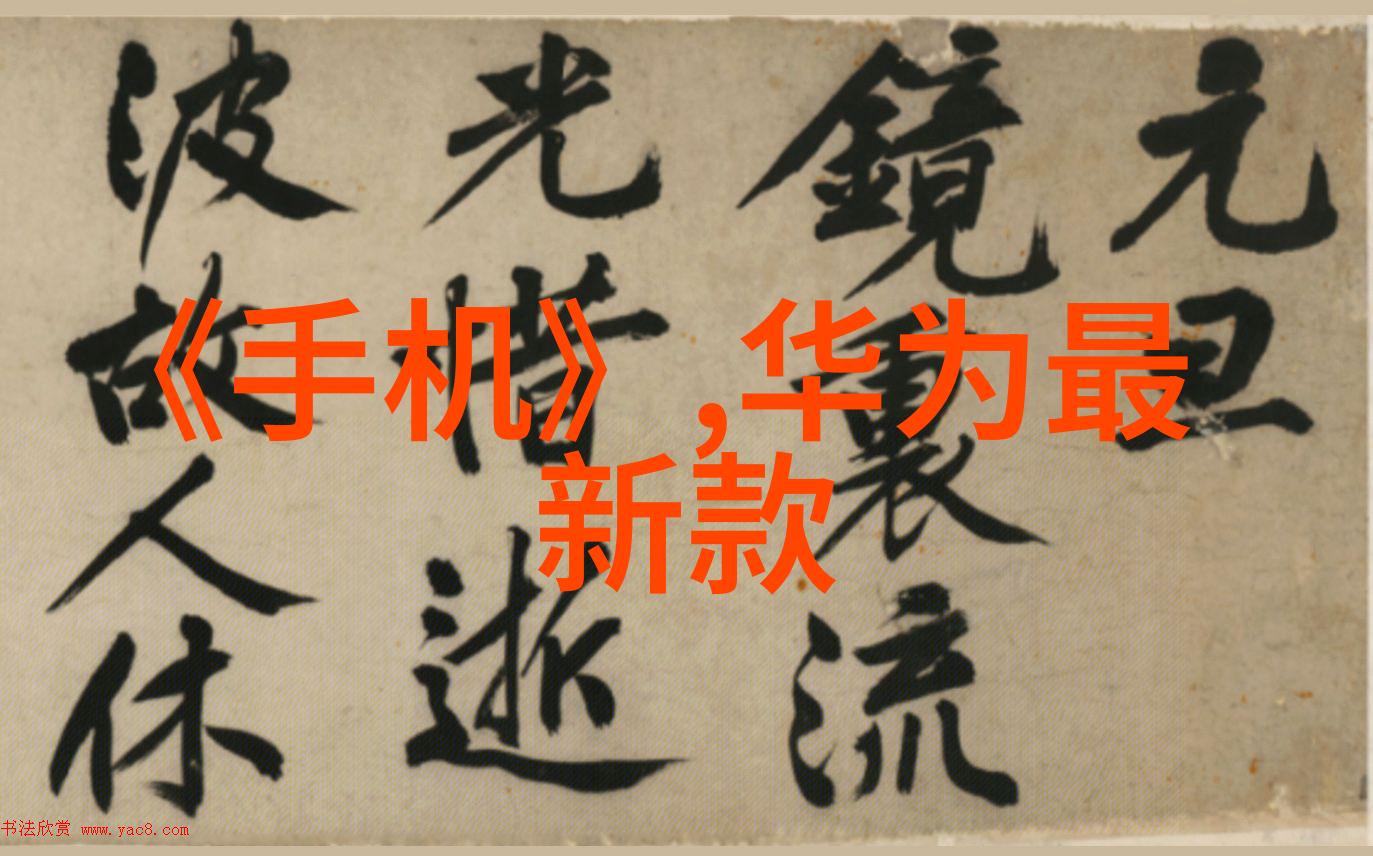 《手机》,华为最
新款
元旦
鏡裏流
光惜逝
波故人休
书法欣赏 www.yac8.com